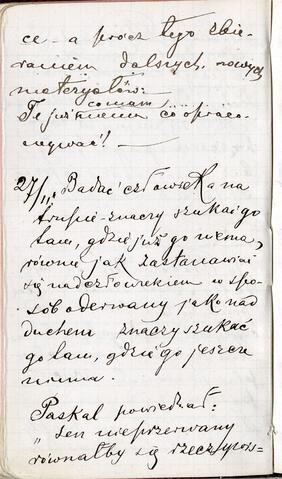 ce – a prócz tego zbie-
raniem dalszych, nowych
materyałów.
co mam
Te już niema co oprac-
owywać! –
27/II. Badać człowieka na
trupie – znaczy szukać go
tam, gdzie już go niema,
równie jak zastanawiać
się nad człowiekiem w spo-
sób oderwany jako nad
duchem znaczy szukać
go tam, gdzie go jeszcze
niema.
Paskal powiedział:
„sen nieprzerwany
równałby się rzeczywis-